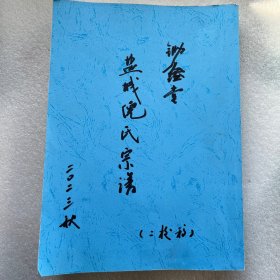 锄经堂
盐城倪氏宗谱
二〇二三秋
（二校稿）